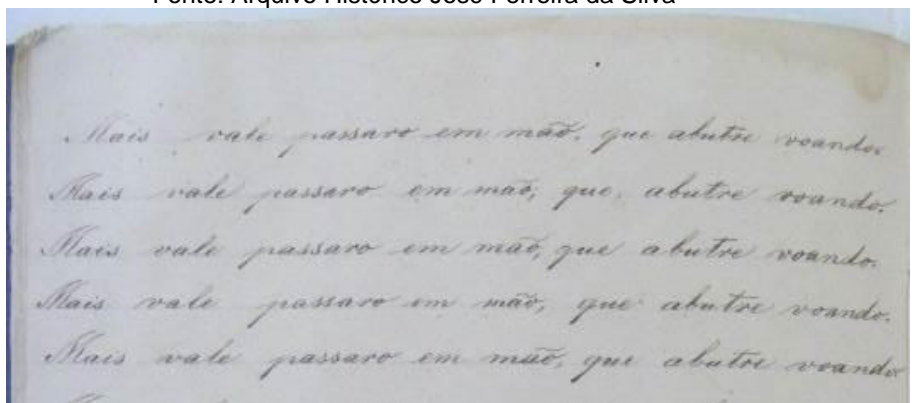 Fonte: Arquivo Histórico José Ferreira da Silva
Mais vale passaro em mão, que abutre voando.
Mais vale passaro em mão, que abutre voando.
Mais vale passaro em mão, que abutre voando.
Mais vale passaro em mão, que abutre voando.
Mais vale passaro em mão, que abutre voando